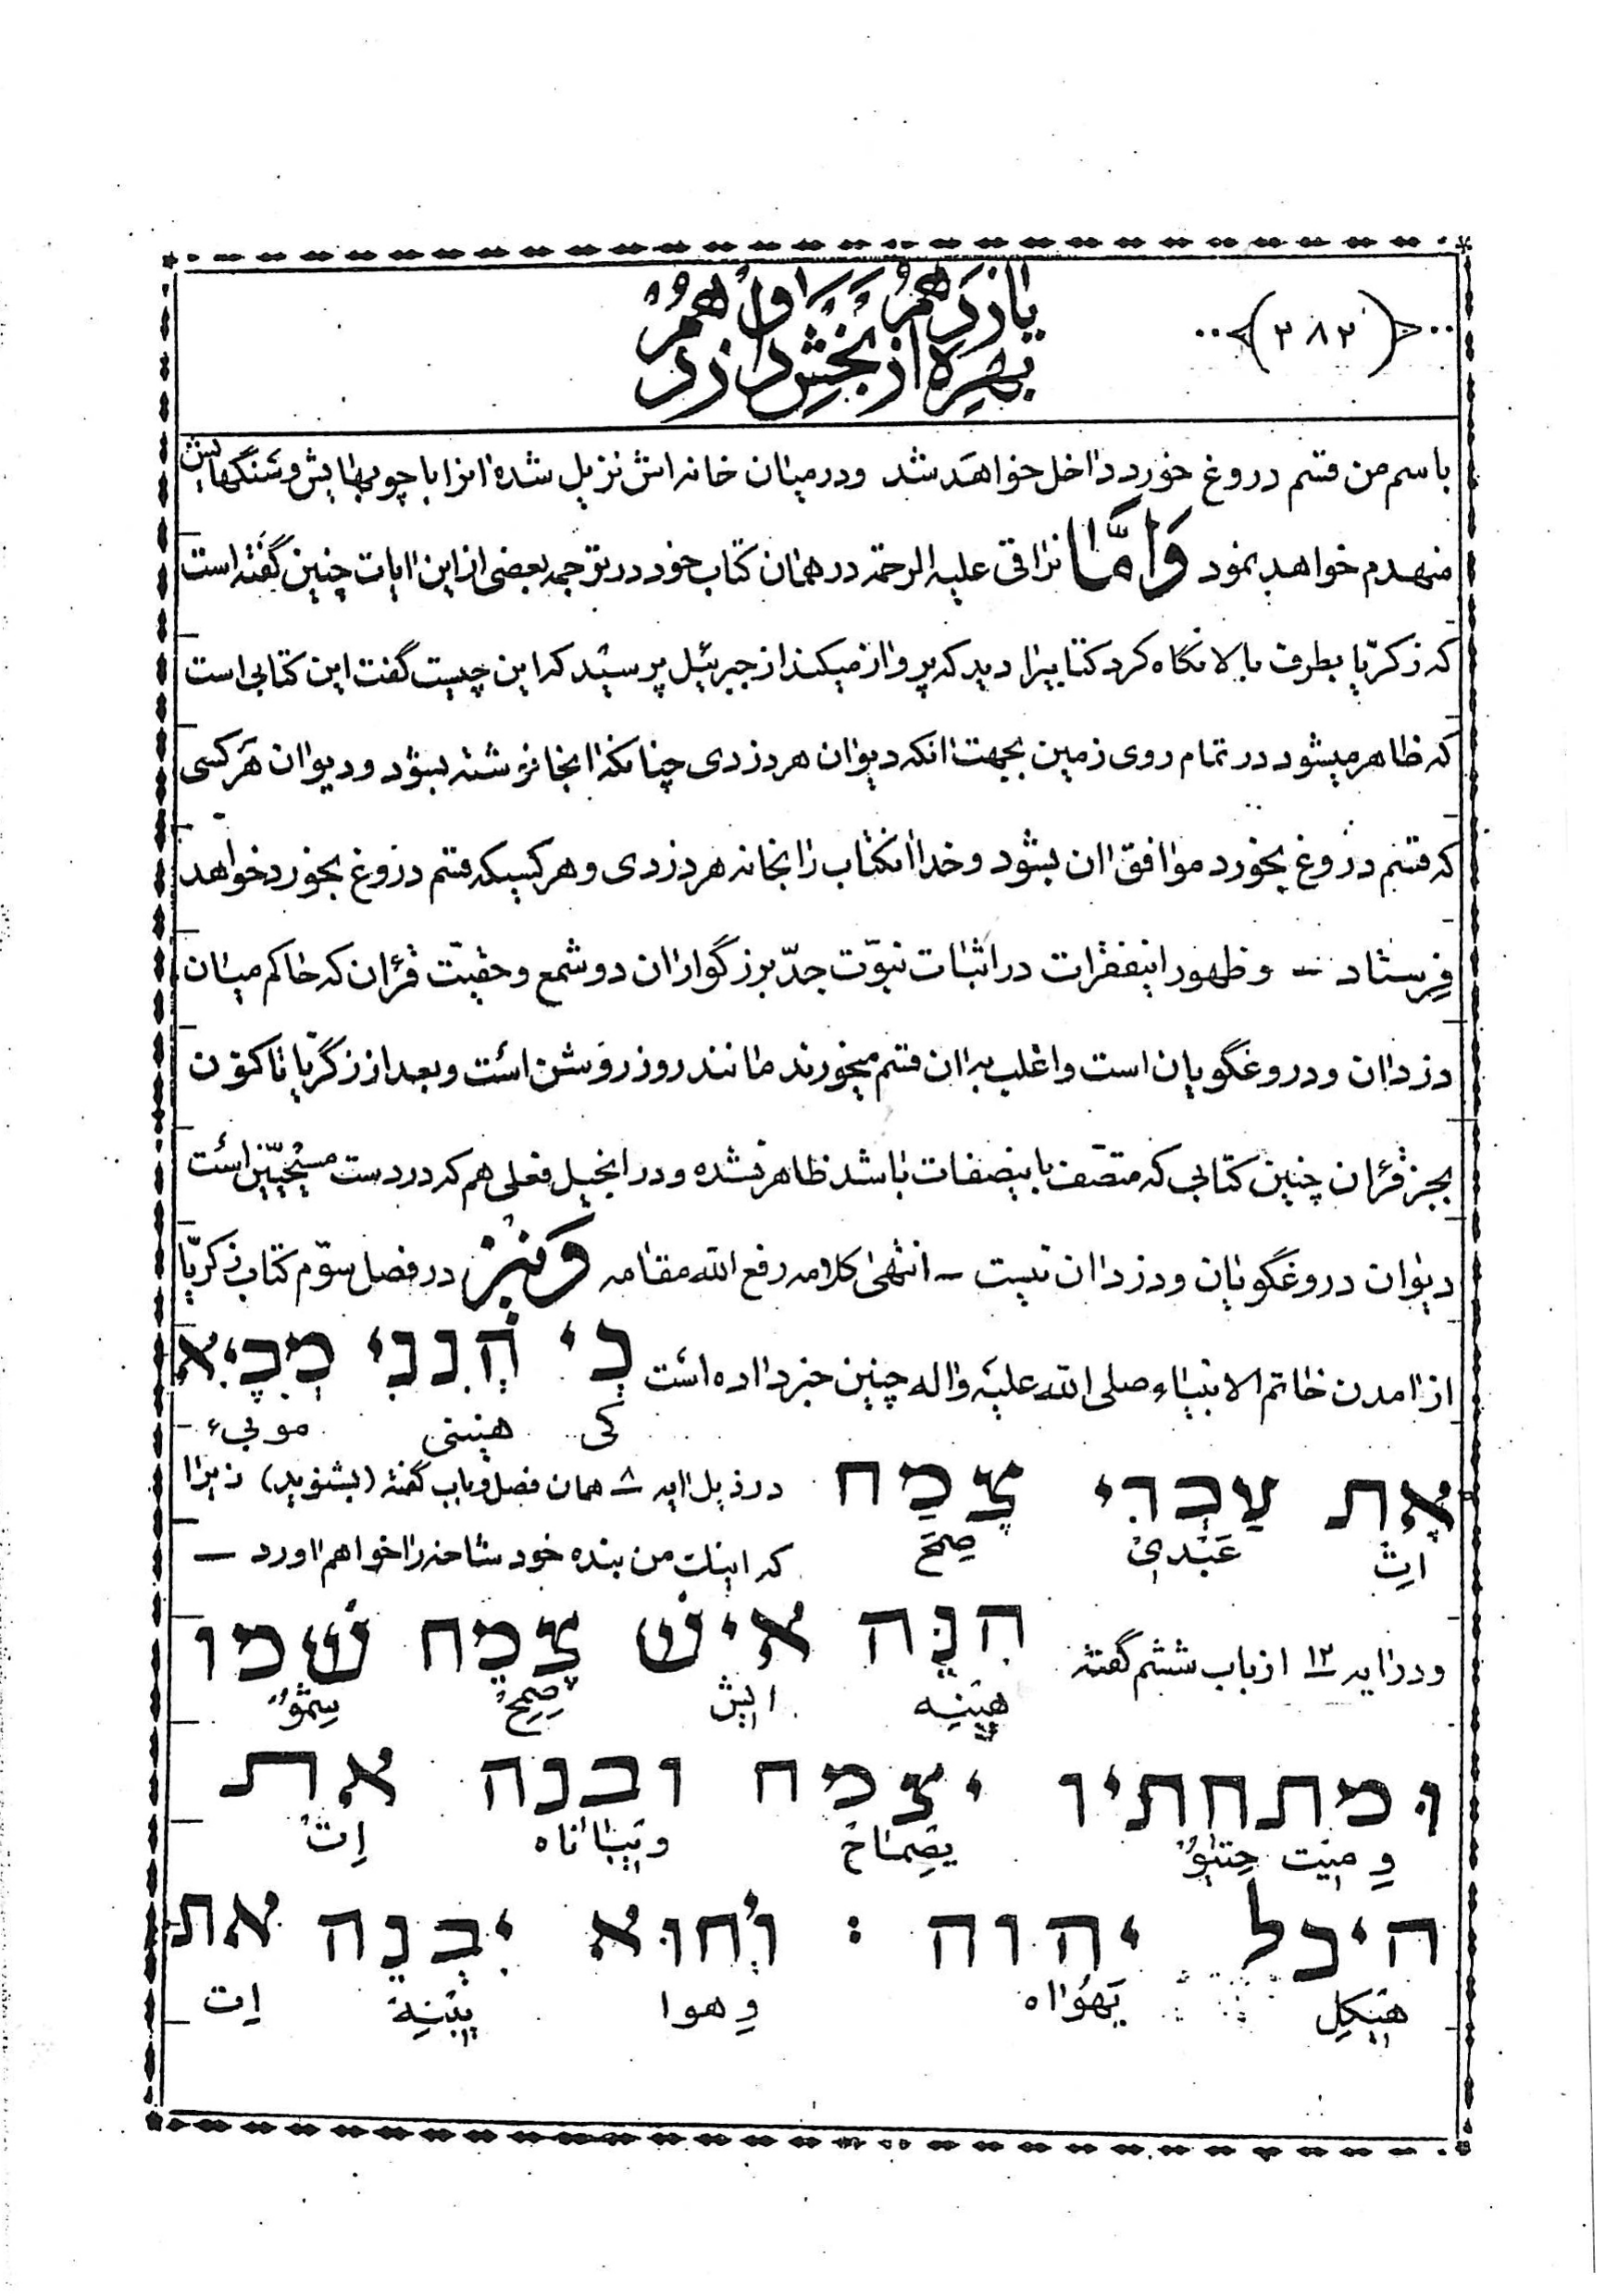 (٢٨٢)
یازدهم
بهره از بخش
باسم من قسم دروغ خورد داخل خواهد شد ودرمیان خانه اش نزیل شده انرا با چوبهایش وسنگهایش
منهدم خواهد نمود وَامَّا نراقی علیه الرحمة در همان کتاب خود در ترجمه بعضی از این ایات چنین گفته است
که زکریّا بطرف بالا نگاه کرد کتابیرا دید که پرواز میکند از جبرئیل پرسید که این چیست گفت این کتابی است
که ظاهر میشود در تمام روی زمین بجهت انکه دیوان هر دزدی چنانکه انجا نوشته بشود ودیوان هر کسی
که قسم دروغ بخورد موافق ان بشود وخدا انکتاب را بخانه هر دزدی وهر کسیکه قسم دروغ بخورد خواهد
فرستاد – وظهور اینفقرات در اثبات نبوّت جدّ بزرگوار ان دو شمع وحقیّت قرءان که حاکم میان
دزدان ودروغگویان است واغلب به ان قسم میخورند مانند روز روشن است وبعد از زکریّا تاکنون
بجز قرءان چنین کتابی که متصّف باینصفات باشد ظاهر نشده ودر انجیل فعلی هم که در دست مسیحیّین است
دیوان دروغگویان ودزدان نیست – انتهی کلامه رفع الله مقامه ونیز در فصل سوّم کتاب زکریّا
از امدن خاتم الانبیاء صلی الله علیه واله چنین خبر داده است כִּי הִנְנִי מֵבִיא
کی هینینی موبیء
אֶת עַבְדִּי צֶמַח در ذیل ایه ٨ همان فصل وباب گفته (بشنوید) زیرا
اِث عَبْدیْ صِمَحْ که اینك من بنده خود شاخه را خواهم اورد –
ودر ایه ١٢ از باب ششم گفته הִנֵּה אִישׁ צֶמַח שְׁמוֹ
هینِه ایش صِمِحْ سِمُوْ
וּמתחתיו יצמח ובנה את
وِ میت حِتیو یصِماخ ویبااناه اِث
היכל יהוה : וְהוּא יִבְנֶה את
هیکِل یَهُوااه وِ هوا ییْنِهْ اِت